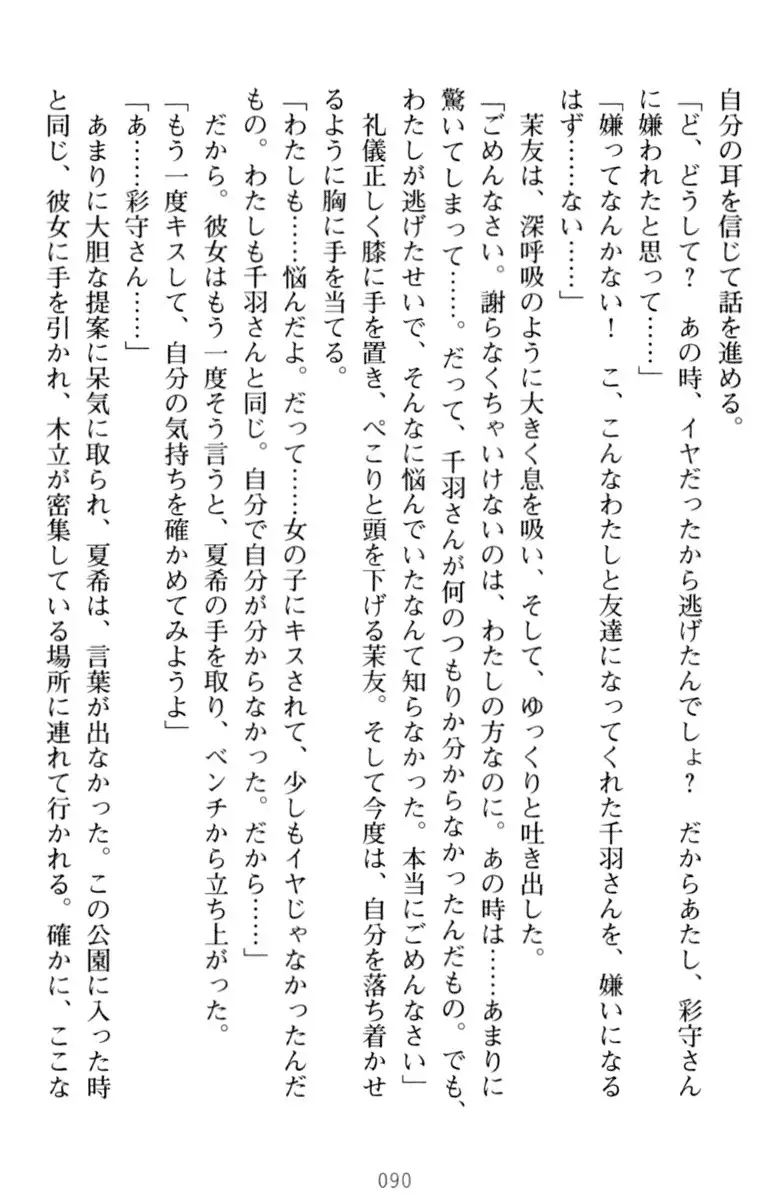 自分の耳を信じて話を進める。
「ど、どうして？　あの時、イヤだったから逃げたんでしょ？　だからあたし、彩守さん
に嫌われたと思って……」
「嫌ってなんかない！　こ、こんなわたしと友達になってくれた千羽さんを、嫌いになる
はず……ない……」
茉友は、深呼吸のように大きく息を吸い、そして、ゆっくりと吐き出した。
「ごめんなさい。謝らなくちゃいけないのは、わたしの方なのに。あの時は……あまりに
驚いてしまって……。だって、千羽さんが何のつもりか分からなかったんだもの。でも、
わたしが逃げたせいで、そんなに悩んでいたなんて知らなかった。本当にごめんなさい」
礼儀正しく膝に手を置き、ぺこりと頭を下げる茉友。そして今度は、自分を落ち着かせ
るように胸に手を当てる。
「わたしも……悩んだよ。だって……女の子にキスされて、少しもイヤじゃなかったんだ
もの。わたしも千羽さんと同じ。自分で自分が分からなかった。だから……」
だから。彼女はもう一度そう言うと、夏希の手を取り、ベンチから立ち上がった。
「もう一度キスして、自分の気持ちを確かめてみようよ」
「あ……彩守さん……」
あまりに大胆な提案に呆気に取られ、夏希は、言葉が出なかった。この公園に入った時
と同じ、彼女に手を引かれ、木立が密集している場所に連れて行かれる。確かに、ここな
090